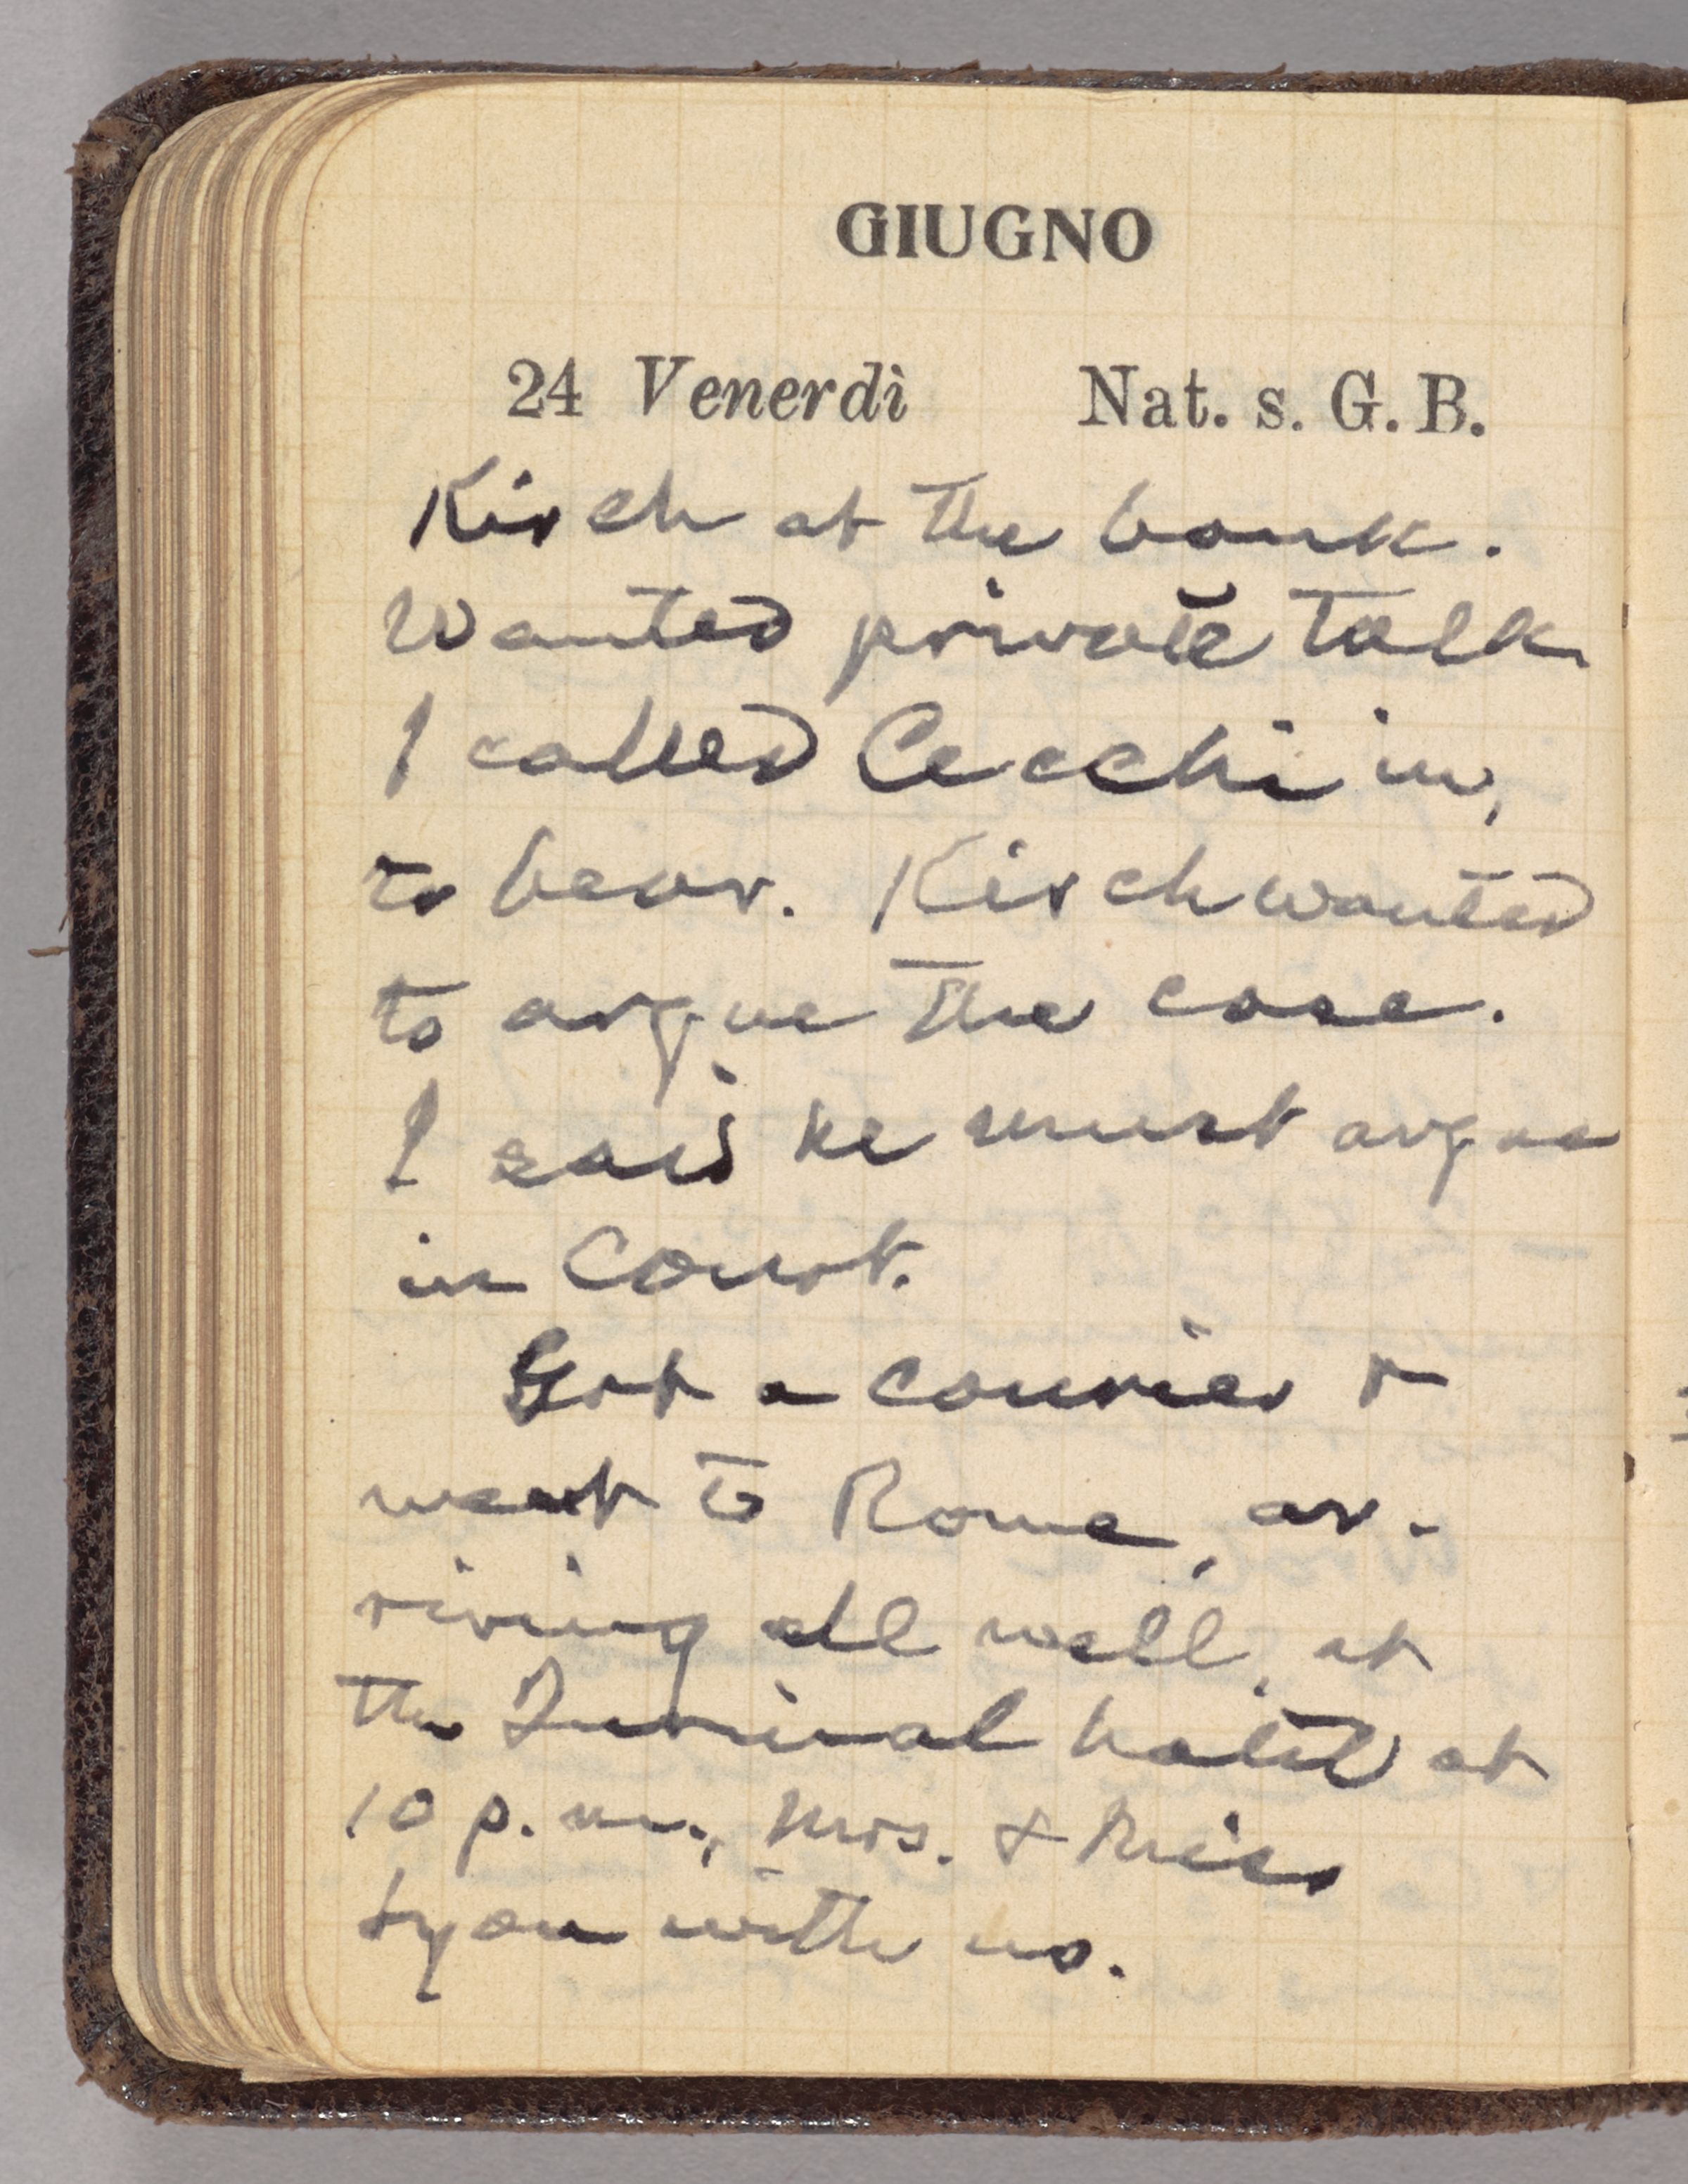 GIUGNO
24 Venerdì Nat. s. G. B.
Kirch at the bank.
Wanted private talk
I called Cecchi in,
to hear. Kirch wanted
to argue the case.
I said he must argue
in Court.
Got a courier &
went to Rome, ar-
riving all well, at
the Quirinal hotel at
10 p.m., Mrs. & Miss
Lyon with us.